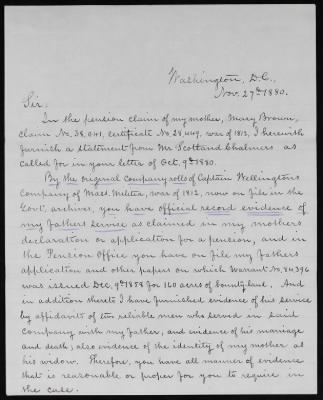 Washington, D.C.,
Nov. 27th 1880.
Sir:
In the pension claim of my mother, Mary Brown,
claim No. 38,041, certificate No. 28,449, war of 1812, I herewith
furnish a statement from Mr Scotland Chalmers as
called for in your letter of Oct. 9th 1880.
By the original company rolls of Captain Wellingtons
Company of Mass. Militia, war of 1812, now on file in the
Govt. archives, you have official record evidence of
my fathers service as claimed in my mothers
declaration or application for a pension, and in
the Pension Office you have on file my fathers
application and other papers on which Warrant No. 84396
was issued Dec. 9th 1858 for 160 acres of bounty land. And
in addition thereto I have furnished evidence of his service
by affidavits of two reliable men who served in said
company with my father, and evidence of his marriage
and death; also evidence of the identity of my mother as
his widow. Therefore, you have all manner of evidence
that is reasonable or proper for you to require in
the case.